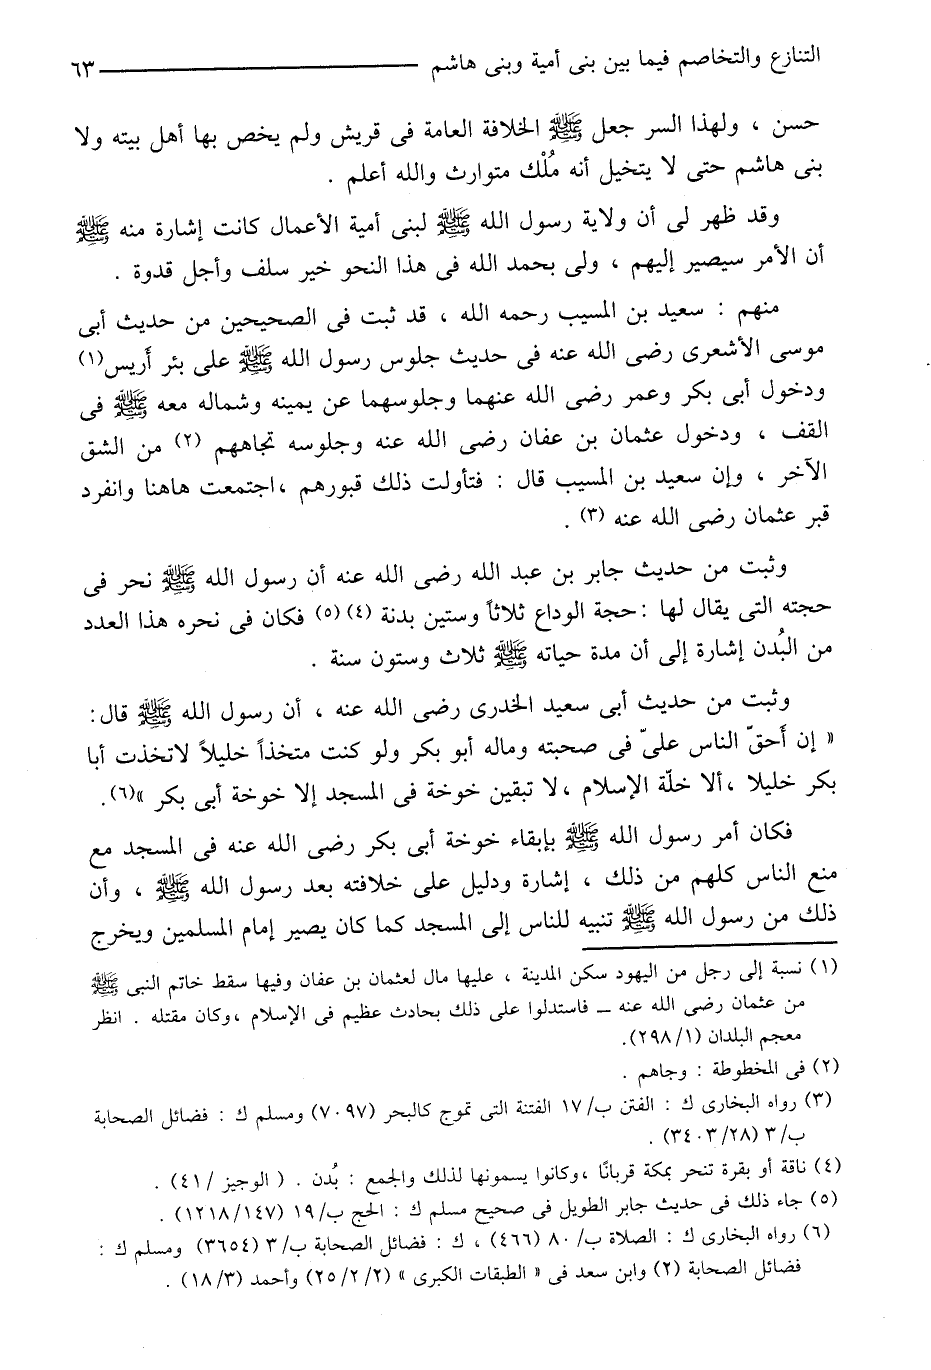 التنازع والتخاصم فيما بين بنى أمية وبنى هاشم ٦٣
حسن ، ولهذا السر جعل ﷺ الخلافة العامة فى قريش ولم يخص بها أهل بيته ولا
بنى هاشم حتى لا يتخيل أنه مُلْك متوارث والله أعلم .
وقد ظهر لى أن ولاية رسول الله ﷺ لبنى أمية الأعمال كانت إشارة منه ﷺ
أن الأمر سيصير إليهم ، ولى بحمد الله فى هذا النحو خير سلف وأجل قدوة .
منهم : سعيد بن المسيب رحمه الله ، قد ثبت فى الصحيحين من حديث أبى
موسى الأشعرى رضى الله عنه فى حديث جلوس رسول الله ﷺ على بئر أَريس(١)
ودخول أبى بكر وعمر رضى الله عنهما وجلوسهما عن يمينه وشماله معه ﷺ فى
القف ، ودخول عثمان بن عفان رضى الله عنه وجلوسه تجاههم (٢) من الشق
الآخر ، وإن سعيد بن المسيب قال : فتأولت ذلك قبورهم ،اجتمعت هاهنا وانفرد
قبر عثمان رضى الله عنه (٣) .
وثبت من حديث جابر بن عبد الله رضى الله عنه أن رسول الله ﷺ نحر فى
حجته التى يقال لها :حجة الوداع ثلاثاً وستين بدنة (٤) (٥) فكان فى نحره هذا العدد
من البُدن إشارة إلى أن مدة حياته ﷺ ثلاث وستون سنة .
وثبت من حديث أبى سعيد الخدرى رضى الله عنه ، أن رسول الله ﷺ قال:
« إن أَحقّ الناس علىّ فى صحبته وماله أبو بكر ولو كنت متخذاً خليلاً لاتخذت أبا
بكر خليلا ،ألا خلّة الإسلام ،لا تبقين خوخة فى المسجد إلا خوخة أبى بكر »(٦).
فكان أمر رسول الله ﷺ بإبقاء خوخة أبى بكر رضى الله عنه فى المسجد مع
منع الناس كلهم من ذلك ، إشارة ودليل على خلافته بعد رسول الله ﷺ ، وأن
ذلك من رسول الله ﷺ تنبيه للناس إلى المسجد كما كان يصير إمام المسلمين ويخرج
(١) نسبة إلى رجل من اليهود سكن المدينة ، عليها مال لعثمان بن عفان وفيها سقط خاتم النبى ﷺ
من عثمان رضى الله عنه ــ فاستدلوا على ذلك بحادث عظيم فى الإسلام ،وكان مقتله . انظر
معجم البلدان (٢٩٨/١).
(٢) فى المخطوطة : وجاهم .
(٣) رواه البخارى ك : الفتن ب/١٧ الفتنة التى تموج كالبحر (٧٠٩٧) ومسلم ك : فضائل الصحابة
ب/٣ (٣٤٠٣/٢٨) .
(٤) ناقة أو بقرة تنحر بمكة قربانًا ،وكانوا يسمونها لذلك والجمع : بُدن . ( الوجيز /٤١) .
(٥) جاء ذلك فى حديث جابر الطويل فى صحيح مسلم ك : الحج ب/١٩ (١٢١٨/١٤٧) .
(٦) رواه البخارى ك : الصلاة ب/ ٨٠ (٤٦٦) ، ك : فضائل الصحابة ب/٣ (٣٦٥٤) ومسلم ك :
فضائل الصحابة (٢) وابن سعد فى « الطبقات الكبرى » (٢٥/٢/٢) وأحمد (١٨/٣) .